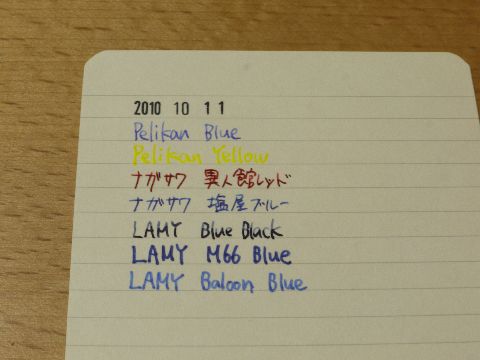 2010 10 11
Pelikan Blue
Pelikan Yellow
ナガサワ 異人館レッド
ナガサワ 塩屋ブルー
LAMY Blue Black
LAMY M66 Blue
LAMY Baloon Blue